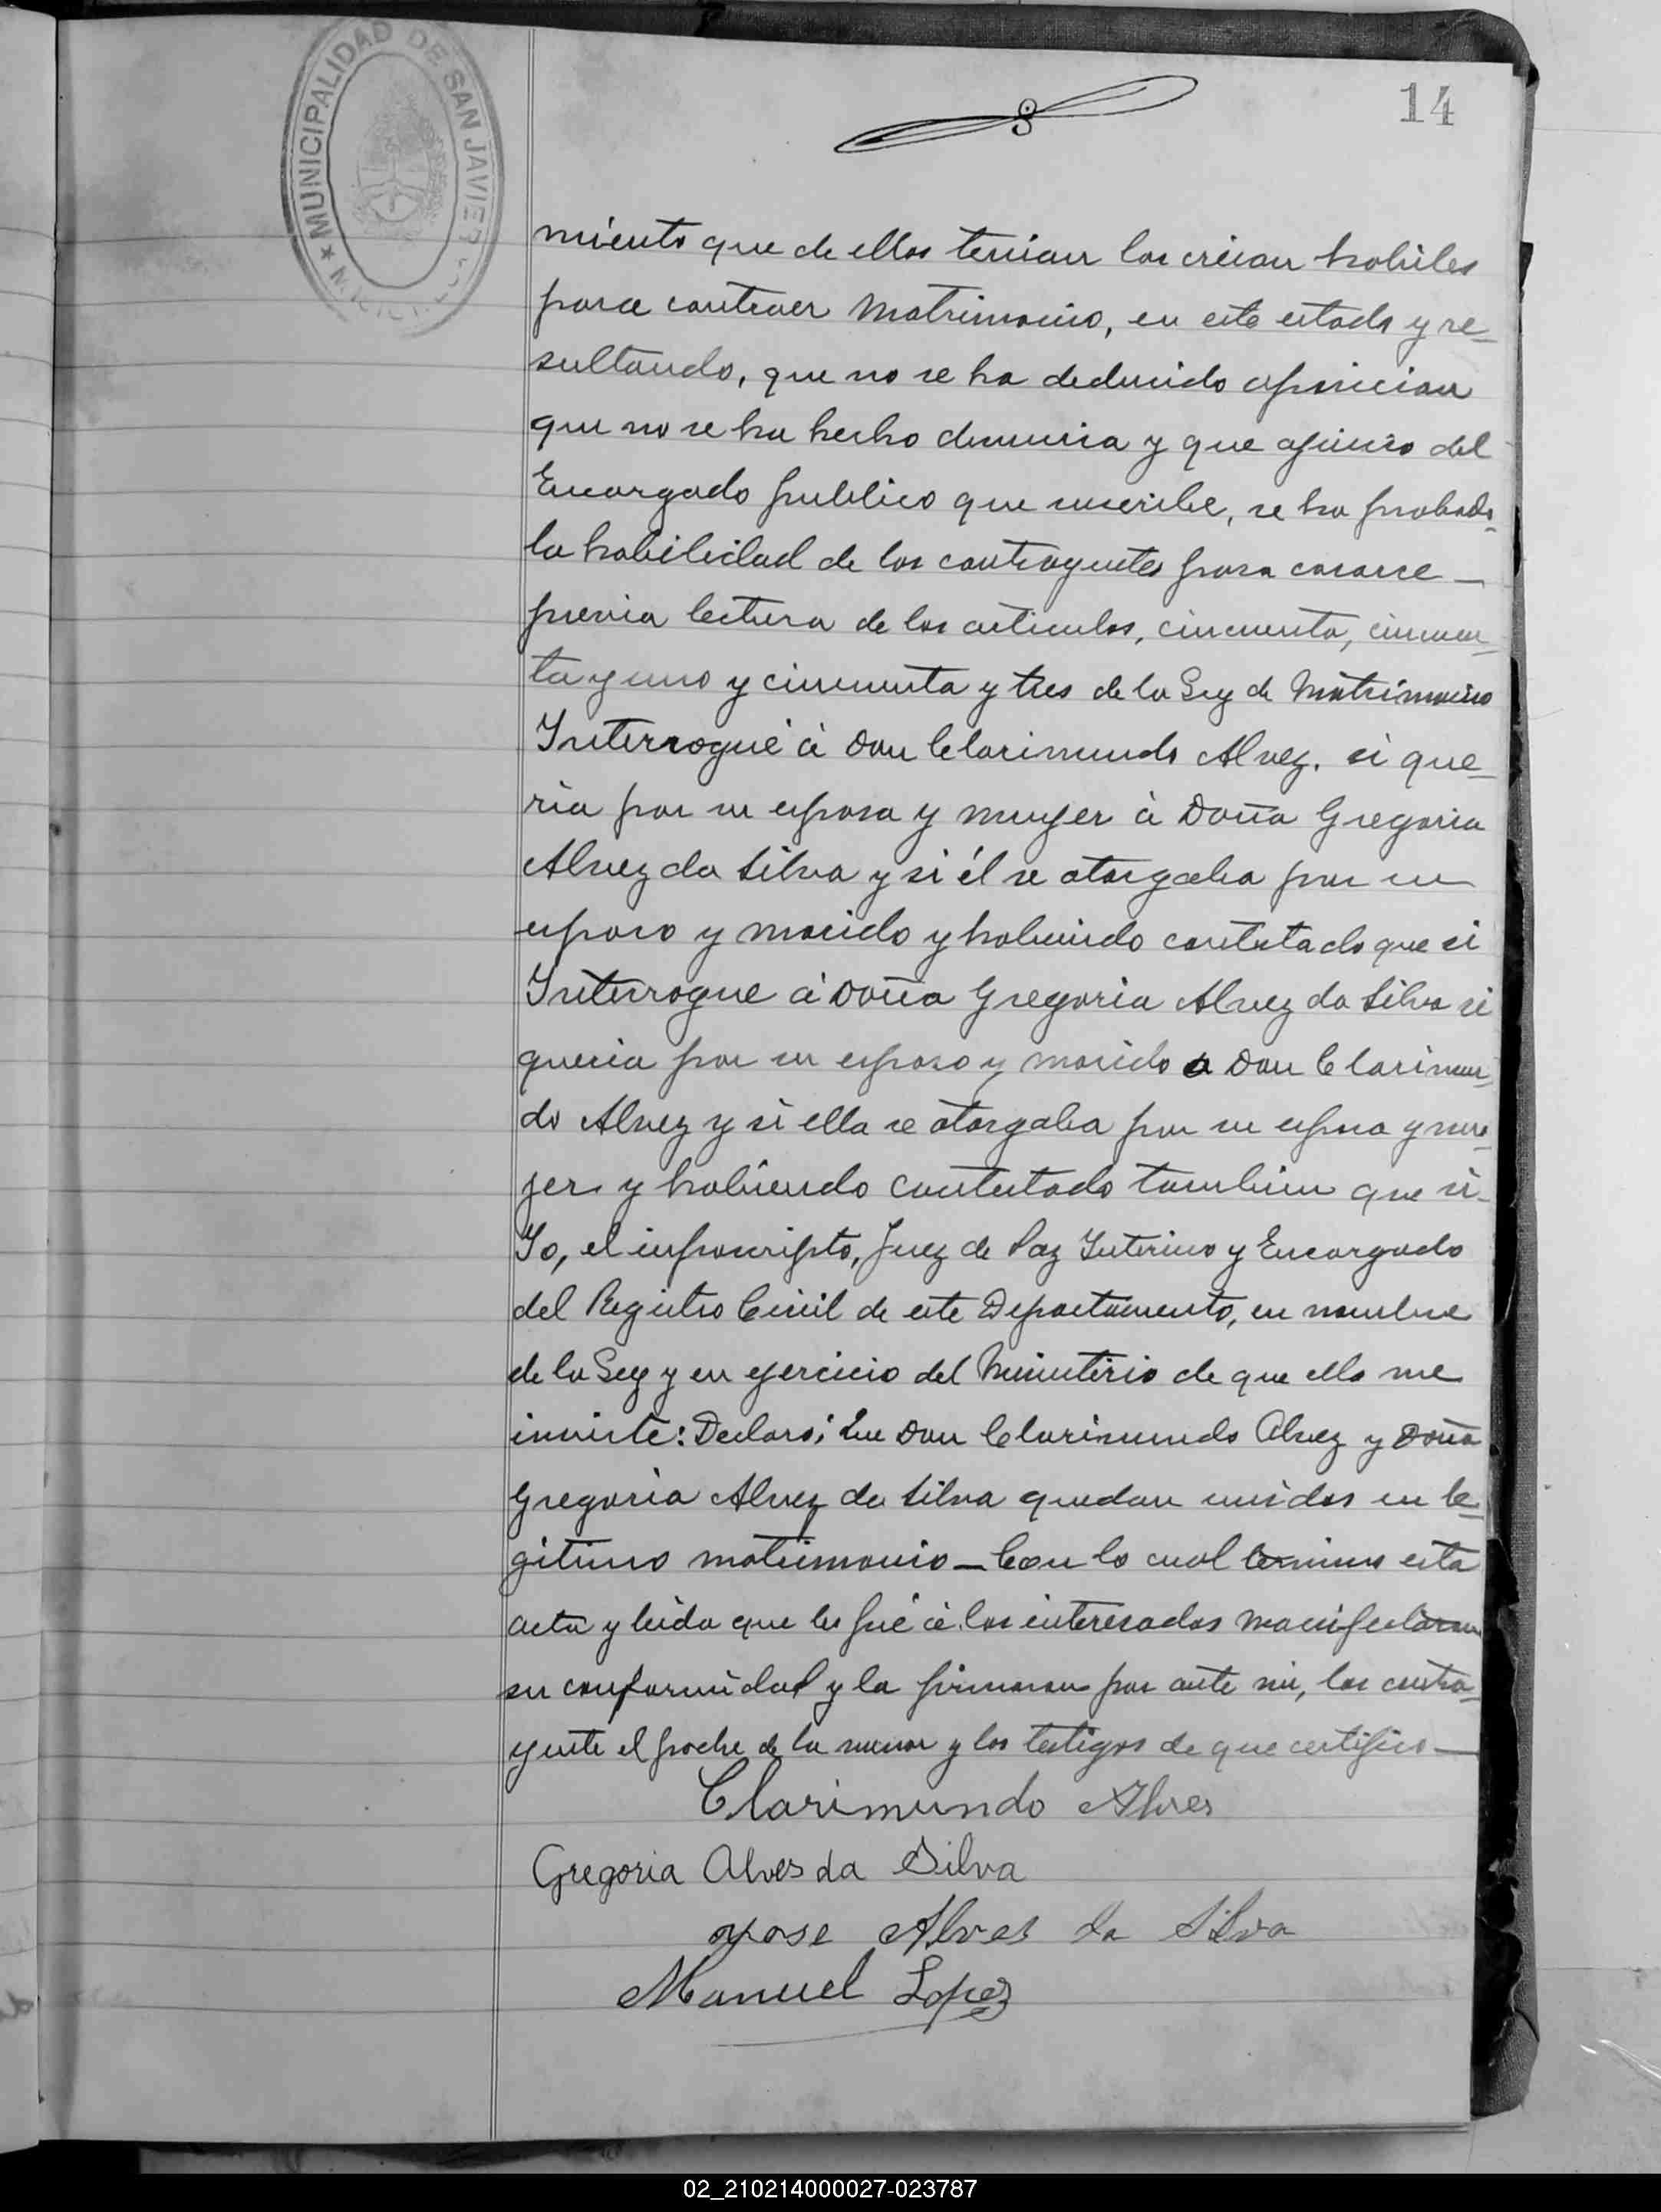 14
MUNICIPALIDAD DE SAN JAVIER
miento que de ellos tenian los creian habiles
para contraer Matrimonio, en este estado y re-
sultando, que no se ha deducido oposicion
que no se ha hecho denuncia y que ajuicio del
Encargado publico que suscribe, se ha probado
la habilidad de los contrayentes para casarse —
previa lectura de los articulos, cincuenta, cincuen-
ta y uno y cincuenta y tres de la Ley de Matrimonio
Interrogué á Don Clarimundo Alvez. si que-
ria por su esposa y mujer á Doña Gregoria
Alvez da Silva y si él se otorgaba por su
esposo y marido y habiendo contestado que si
Interrogue á Doña Gregoria Alvez da Silva si
queria por su esposo y marido a Don Clarimun-
do Alvez y si ella se otorgaba por su esposa y mu-
jer y habiendo contestado tambien que si-
Yo, el infrascripto, Juez de Paz Interino y Encargado
del Registro Civil de este Departamento, en nombre
de la Ley y en ejercicio del Ministerio de que ella me
inviste: Declaro; Que Don Clarimundo Alvez y Doña
Gregoria Alvez da Silva quedan unidos en le-
gitimo matrimonio — Con lo cual termino esta
acta y leida que les fué á los interesados manifestaron
su conformidad y la firmaron por ante mi, los contra-
yente el padre de la menor y los testigos de que certifico —
Clarimundo Alves
Gregoria Alves da Silva
Jose Alves da Silva
Manuel Lopez
02_210214000027-023787